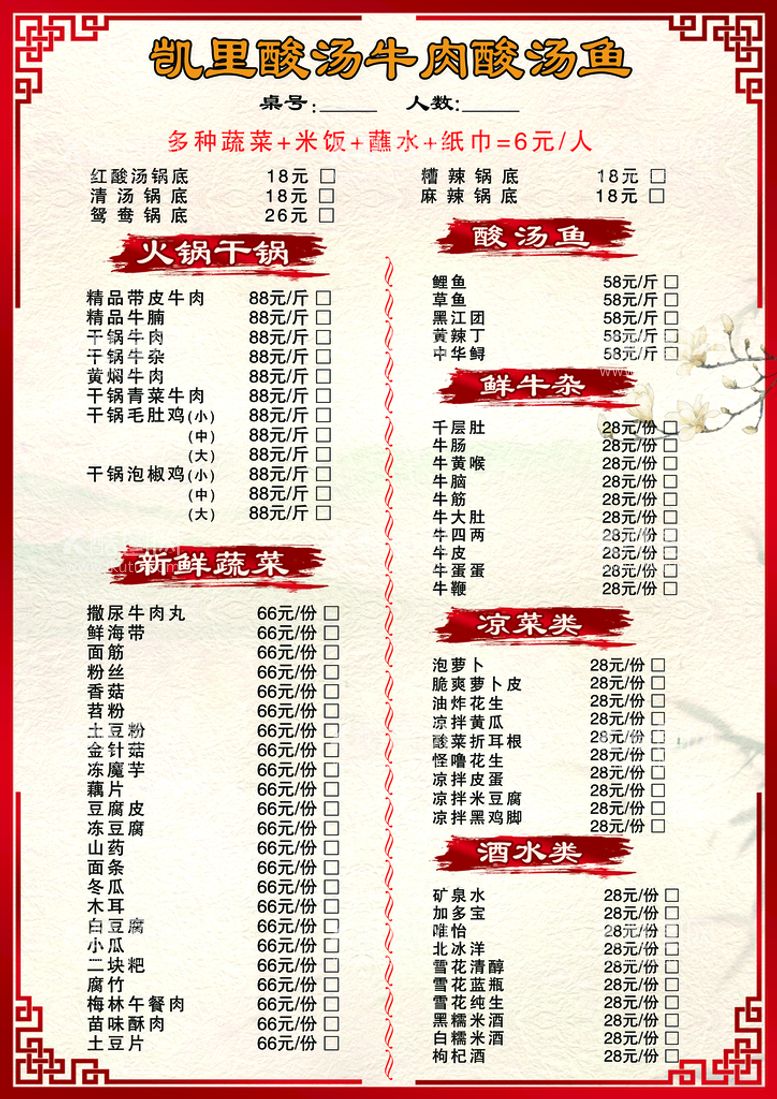 凯里酸汤牛肉酸汤鱼
桌号:_____ 人数:_____
多种蔬菜+米饭+蘸水+纸巾=6元/人
红酸汤锅底 18元 □
清汤锅底 18元 □
鸳鸯锅底 26元 □
糟辣锅底 18元 □
麻辣锅底 18元 □
火锅干锅
精品带皮牛肉 88元/斤 □
精品牛腩 88元/斤 □
干锅牛肉 88元/斤 □
干锅牛杂 88元/斤 □
黄焖牛肉 88元/斤 □
干锅青菜牛肉 88元/斤 □
干锅毛肚鸡(小) 88元/斤 □
(中) 88元/斤 □
(大) 88元/斤 □
干锅泡椒鸡(小) 88元/斤 □
(中) 88元/斤 □
(大) 88元/斤 □
新鲜蔬菜
撒尿牛肉丸 66元/份 □
鲜海带 66元/份 □
面筋 66元/份 □
粉丝 66元/份 □
香菇 66元/份 □
苕粉 66元/份 □
土豆粉 66元/份 □
金针菇 66元/份 □
冻魔芋 66元/份 □
藕片 66元/份 □
豆腐皮 66元/份 □
冻豆腐 66元/份 □
山药 66元/份 □
面条 66元/份 □
冬瓜 66元/份 □
木耳 66元/份 □
白豆腐 66元/份 □
小瓜 66元/份 □
二块粑 66元/份 □
腐竹 66元/份 □
梅林午餐肉 66元/份 □
苗味酥肉 66元/份 □
土豆片 66元/份 □
酸汤鱼
鲤鱼 58元/斤 □
草鱼 58元/斤 □
黑江团 58元/斤 □
黄辣丁 58元/斤 □
中华鲟 58元/斤 □
鲜牛杂
千层肚 28元/份 □
牛肠 28元/份 □
牛黄喉 28元/份 □
牛脑 28元/份 □
牛筋 28元/份 □
牛大肚 28元/份 □
牛四两 28元/份 □
牛皮 28元/份 □
牛蛋蛋 28元/份 □
牛鞭 28元/份 □
凉菜类
泡萝卜 28元/份 □
脆爽萝卜皮 28元/份 □
油炸花生 28元/份 □
凉拌黄瓜 28元/份 □
酸菜折耳根 28元/份 □
怪噜花生 28元/份 □
凉拌皮蛋 28元/份 □
凉拌米豆腐 28元/份 □
凉拌黑鸡脚 28元/份 □
28元/份 □
酒水类
矿泉水 28元/份 □
加多宝 28元/份 □
唯怡 28元/份 □
北冰洋 28元/份 □
雪花清醇 28元/份 □
雪花蓝瓶 28元/份 □
雪花纯生 28元/份 □
黑糯米酒 28元/份 □
白糯米酒 28元/份 □
枸杞酒 28元/份 □